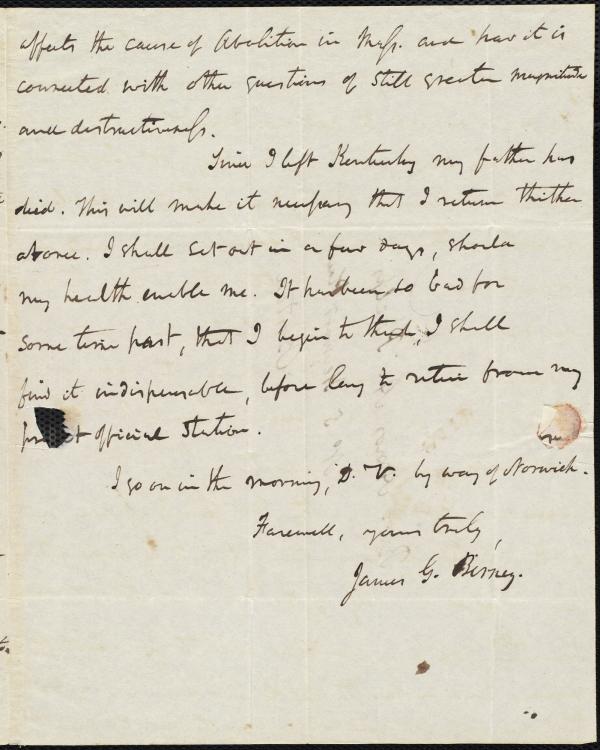 affects the cause of Abolition in Mass. and how it is
connected with other questions of still greater magnitude
and destructiveness.
Since I left Kentucky my father has
died. This will make it necessary that I return thither
at once. I shall set out in a few days, should
my health enable me. It has been so bad for
some time past, that I begin to think, I shall
find it indispensable, before long to retire from my
official station.
I go on in the morning, D. V. by way of Norwich.
Farewell, yours truly,
James G. Birney.